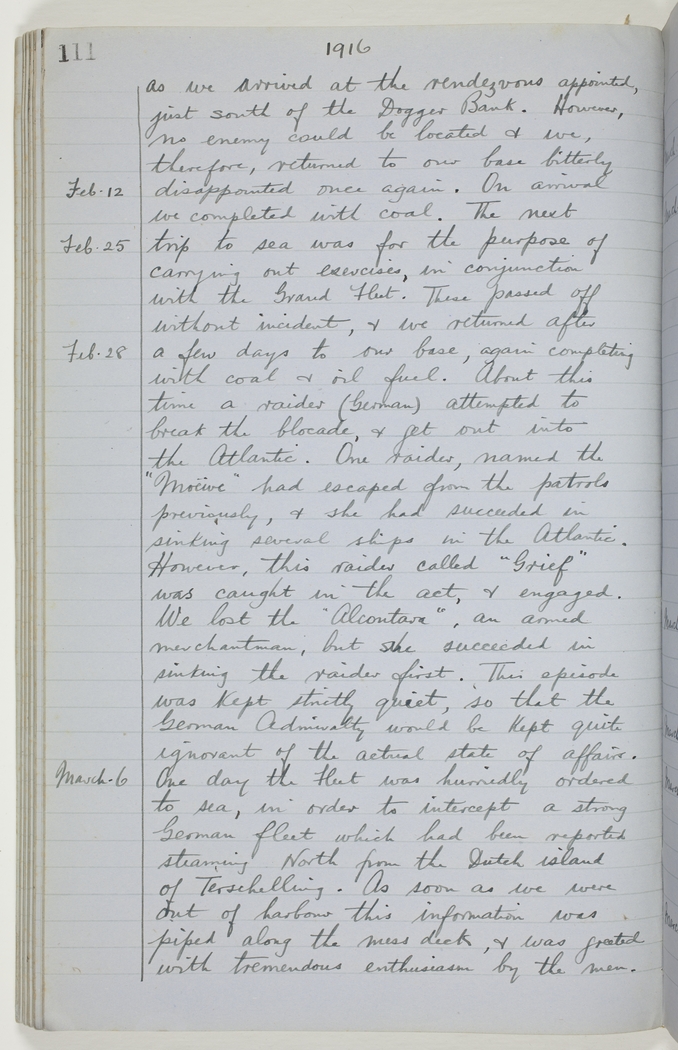 111
1916
as we arrived at the rendezvous appointed,
just south of the Dogger Bank. However,
no enemy could be located & we,
therefore, returned to our base bitterly
Feb. 12 disappointed once again. On arrival
we completed with coal. The next
Feb. 25 trip to sea was for the purpose of
carrying out exercises, in conjunction
with the Grand Fleet. These passed off
without incident, & we returned after
Feb. 28 a few days to our base, again completing
with coal & oil fuel. About this
time a raider (German) attempted to
break the blocade, & get out into
the Atlantic. One raider, named the
"Moëwe" had escaped from the patrols
previously, & she had succeeded in
sinking several ships in the Atlantic.
However, this raider called "Grief"
was caught in the act, & engaged.
We lost the "Alcontara", an armed
merchantman, but she succeeded in
sinking the raider first. This episode
was kept strictly quiet, so that the
German Admiralty would be kept quite
ignorant of the actual state of affairs.
March. 6 One day the Fleet was hurriedly ordered
to sea, in order to intercept a strong
German fleet which had been reported
steaming North from the Dutch island
of Terschelling. As soon as we were
out of harbour this information was
piped along the mess deck, & was greeted
with tremendous enthusiasm by the men.